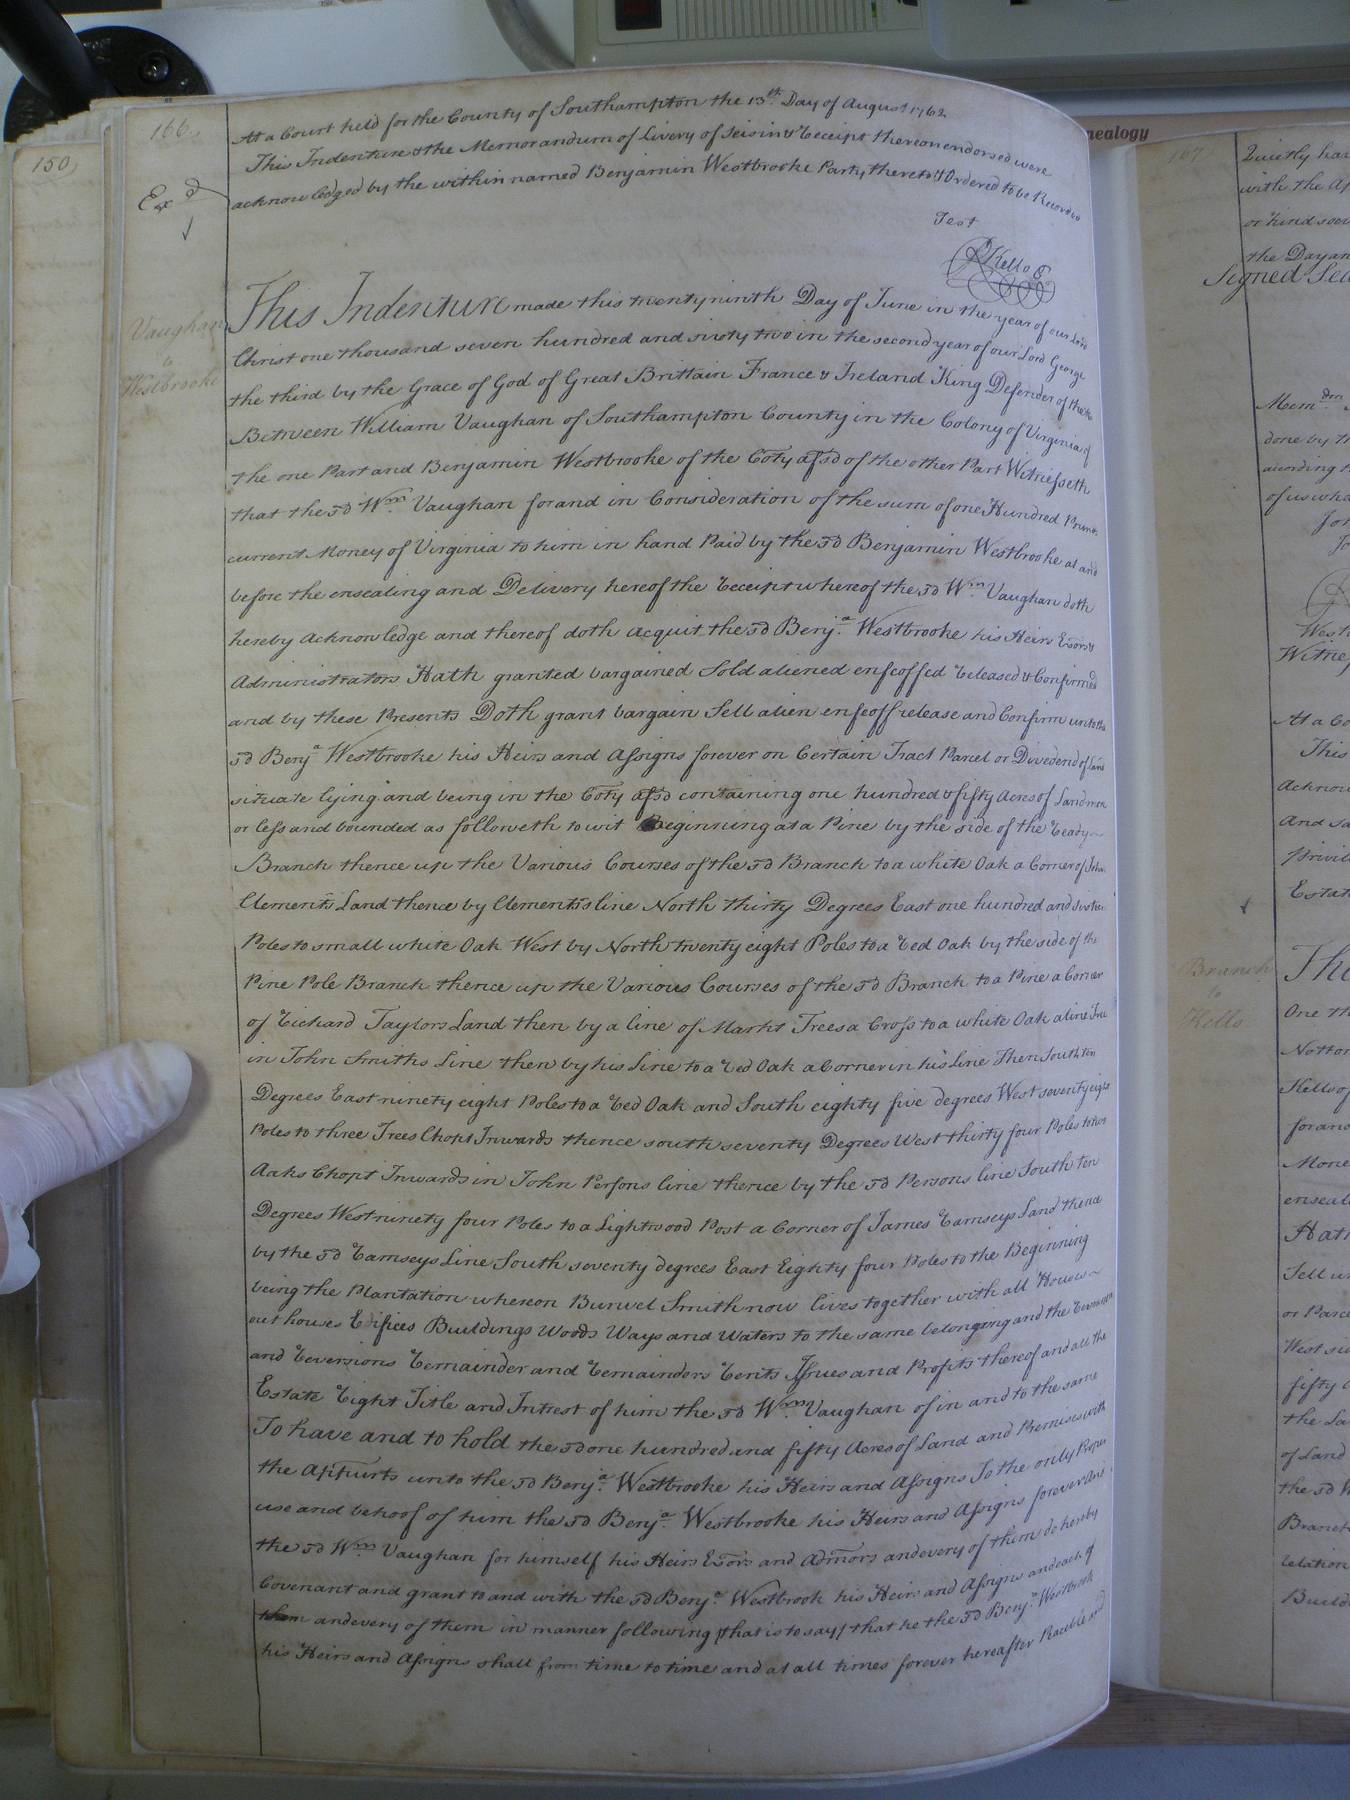 166.
150
nealogy
167
Exd
At a Court held for the County of Southampton the 13th. Day of August 1762
This Indenture & the Memorandum of Livery of Seisin & Receipt thereon endorsed were
acknowledged by the within named Benjamin Westbrooke Party thereto & Ordered to be Recorded
Test
R Kello
Vaughan
to
Westbrooke
This Indenture made this twenty ninth Day of June in the year of our Lord
Christ one thousand seven hundred and sixty two in the second year of our Lord George
the third by the Grace of God of Great Brittain France & Ireland King Defender of the
Between William Vaughan of Southampton County in the Colony of Virginia of
the one Part and Benjamin Westbrooke of the Coty afsd of the other Part Witnesseth
that the sd Wm. Vaughan for and in Consideration of the sum of one Hundred
current Money of Virginia to him in hand Paid by the sd Benjamin Westbrooke at and
before the ensealing and Delivery hereof the Receipt whereof the sd Wm Vaughan doth
hereby Acknowledge and thereof doth acquit the sd Benja. Westbrooke his Heirs Exors &
Administrators Hath granted bargained Sold aliened enfeoffed Released & Confirmed
and by these Presents Doth grant bargain Sell alien enfeoff release and Confirm unto the
sd Benja Westbrooke his Heirs and Assigns forever on Certain Tract Parcel or Dividend of Land
situate lying and being in the Coty afsd containing one hundred & fifty Acres of Land more
or less and bounded as followeth to wit Beginning at a Pine by the side of the Ready
Branch thence up the Various Courses of the sd Branch to a white Oak a Corner of John
Clements Land thence by Clements's line North thirty Degrees East one hundred and
Poles to small white Oak West by North twenty eight Poles to a Red Oak by the side of the
Pine Pole Branch thence up the Various Courses of the sd Branch to a Pine a Corner
of Richard Taylors Land then by a line of Markt Trees a Cross to a white Oak a line Tree
in John Smiths Line then by his Line to a Red Oak a Corner in his Line Then South ten
Degrees East ninety eight Poles to a Red Oak and South eighty five degrees West seventy eight
Poles to three Trees Chopt Inwards thence south seventy Degrees West thirty four Poles to two
Oaks Chopt Inwards in John Persons line thence by the sd Persons line South ten
Degrees West ninety four Poles to a Lightwood Post a Corner of James Ramseys Land thence
by the sd Ramseys Line South seventy degrees East Eighty four Poles to the Beginning
being the Plantation whereon Burwel Smith now lives together with all Houses
out houses Edifices Buildings Woods Ways and Waters to the same belonging and the
and Reversions Remainder and Remainders Rents Issues and Profits thereof and all the
Estate Right Title and Intrest of him the sd Wm. Vaughan of in and to the same
To have and to hold the sd one hundred and fifty Acres of Land and Premises with
the Appurts unto the sd Benja. Westbrooke his Heirs and Assigns To the only Proper
use and behoof of him the sd Benja. Westbrooke his Heirs and Assigns forever And
the sd Wm. Vaughan for himself his Heirs Exors and Admors and every of them do hereby
Covenant and grant to and with the sd Benja. Westbrook his Heirs and Assigns and each of
them and every of them in manner following /that is to say/ that he the sd Benja. Westbrook
his Heirs and Assigns shall from time to time and at all times forever hereafter Paceble and
Quietly
with the
the Day an
Signed Sea
Memdm
done by
of us
At a Co
This
And
Branch
to
Kello
One
Kello of
Mone
Hath
Sell
or Parce
West
fifty
of Land
the sd
Branch